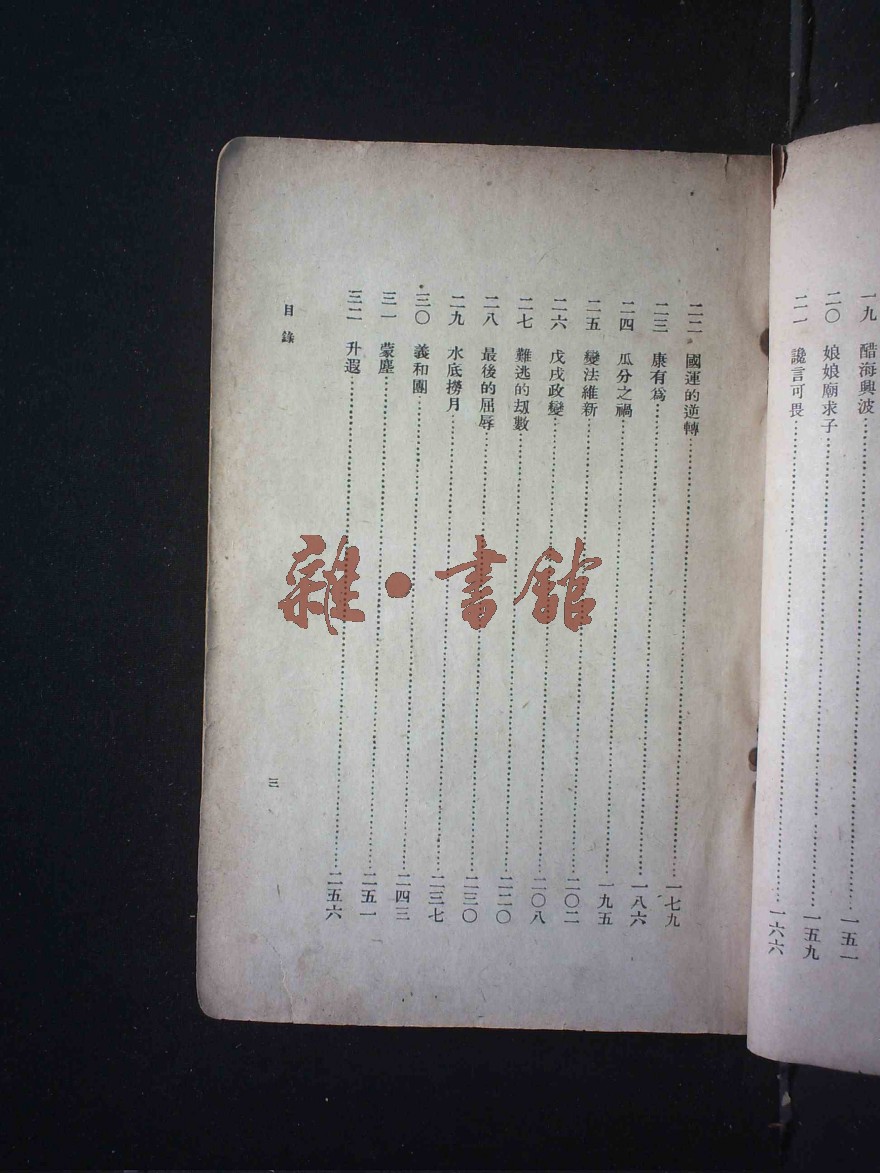 一九 醋海興波……一五一
二〇 娘娘廟求子……一五九
二一 讒言可畏……一六六
二二 國運的逆轉……一七九
二三 康有爲……一八六
二四 瓜分之禍……一九五
二五 變法維新……二〇二
二六 戊戌政變……二〇八
二七 難逃的劫數……二二〇
二八 最後的屈辱……二三〇
二九 水底撈月……二三七
三〇 義和團……二四三
三一 蒙塵……二五一
三二 升遐……二五六
目錄
三
雜·書館